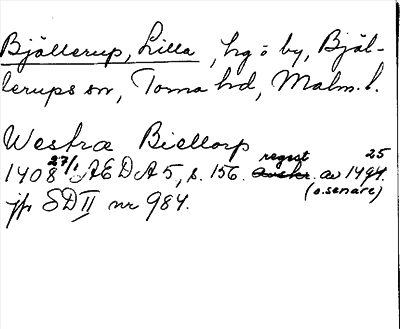 Bjällerup, Lilla, hg o by, Bjäl-
lerups sn, Torna hd, Malm. l.
Westræ Biellorp
1408 27/1 ÆDA 5, s. 156. regest av 1494. 25
(o. senare)
jfr SD II nr 984.